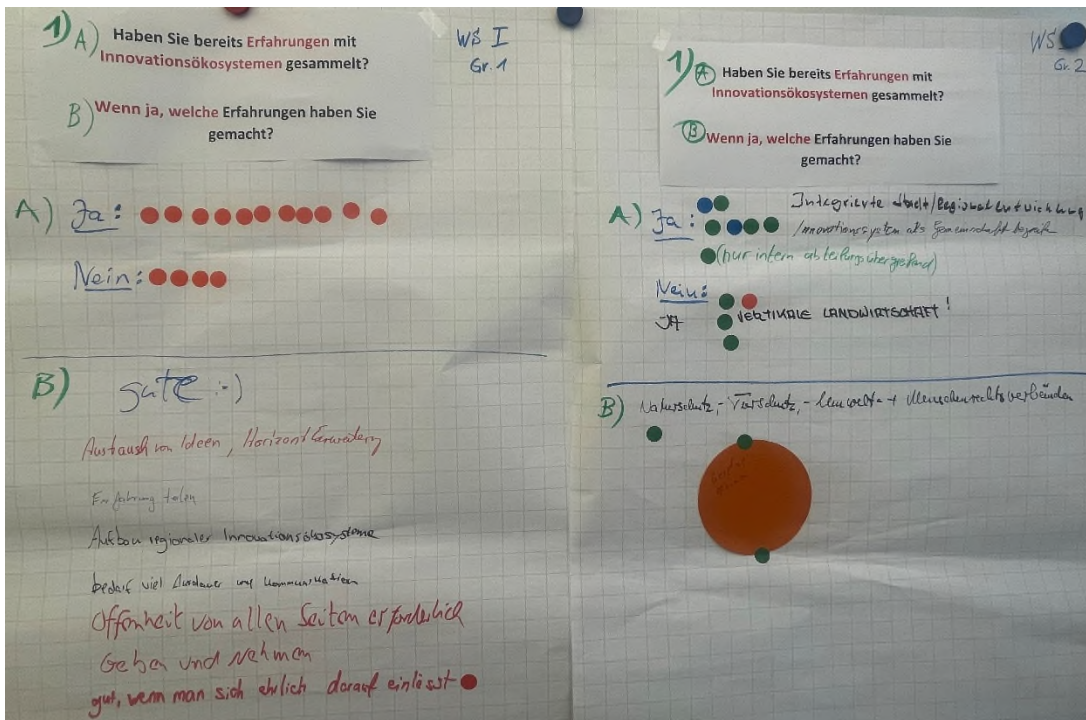 1) A) Haben Sie bereits Erfahrungen mit
Innovationsökosystemen gesammelt?
B) Wenn ja, welche Erfahrungen haben Sie
gemacht?
WS I
Gr. 1
A) Ja:
Nein:
B) gute :-)
Austausch von Ideen, Horizont erweitern
Erfahrung teilen
Aufbau regionaler Innovationsökosysteme
bedarf viel Ausdauer und Kommunikation
Offenheit von allen Seiten erforderlich
Geben und Nehmen
gut, wenn man sich ehrlich darauf einlässt
WS
Gr. 2
1) A Haben Sie bereits Erfahrungen mit
Innovationsökosystemen gesammelt?
B Wenn ja, welche Erfahrungen haben Sie
gemacht?
A) Ja: Integrierte Stadt/Regionalentwicklung
Innovationssystem als Gemeinschaft
(nur intern abteilungsübergreifend)
Nein:
JA VERTIKALE LANDWIRTSCHAFT!
B) Naturschutz,- Tierschutz,- Umwelt- + Menschenrechtsverbänden